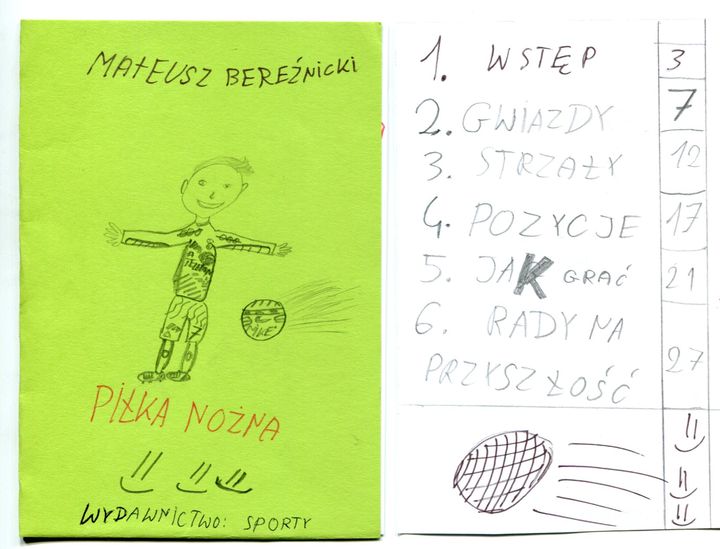 MATEUSZ BEREŹNICKI
PIŁKA NOŻNA
WYDAWNICTWO: SPORTY
1. WSTĘP 3
2. GWIAZDY 7
3. STRZAŁY 12
4. POZYCJE 17
5. JAK GRAĆ 21
6. RADY NA
PRZYSZŁOŚĆ 27